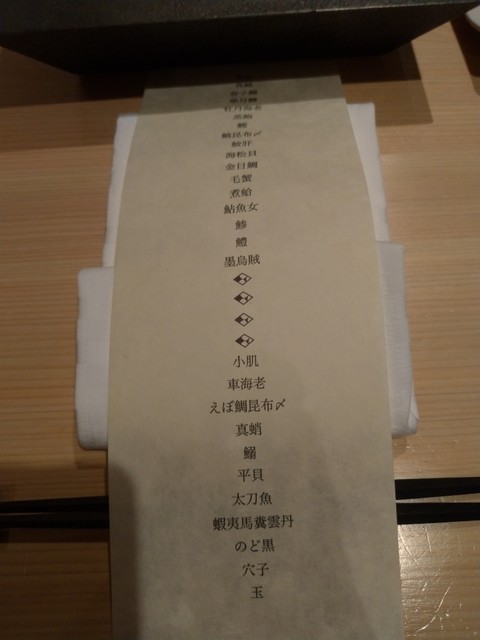 牡丹海老
鮟肝
海松貝
金目鯛
毛蟹
煮蛤
鮎魚女
鯵
鱧
墨烏賊
小肌
車海老
えぼ鯛昆布〆
真蛸
鰯
平貝
太刀魚
蝦夷馬糞雲丹
のど黒
穴子
玉